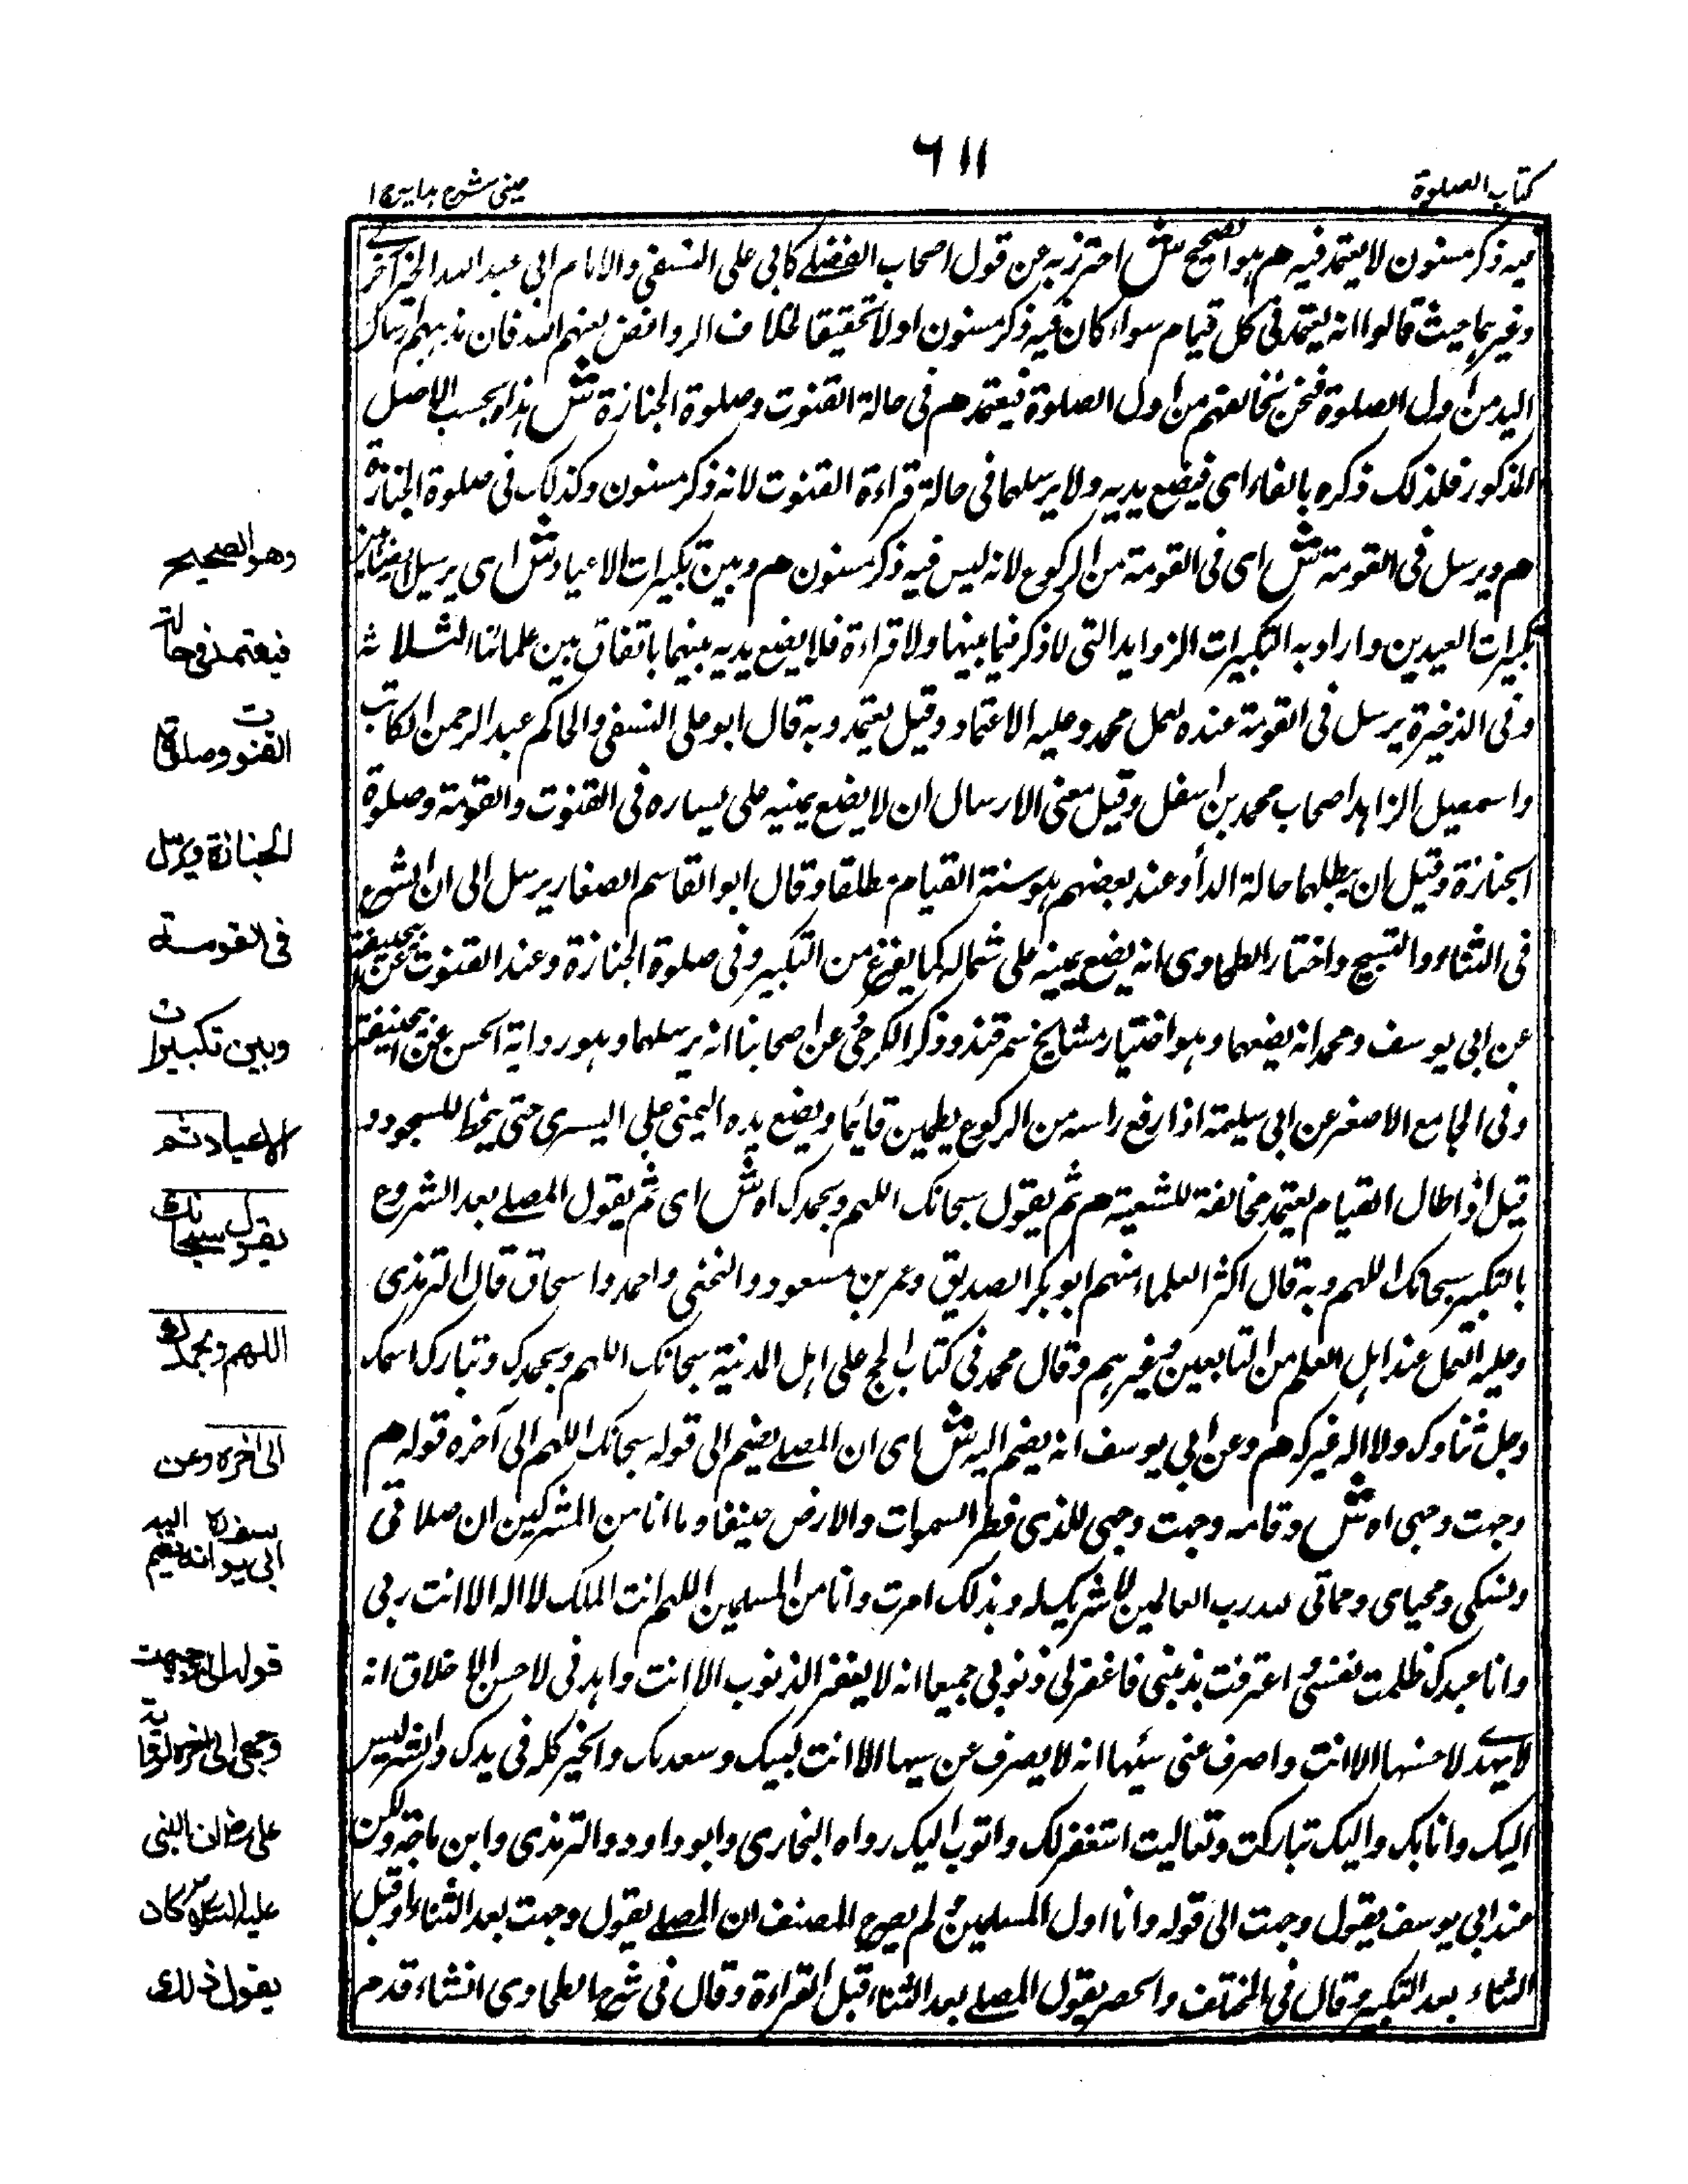 ٦١١
كتاب الصلوة
عينى شرح هدايه ج ١
فيه ذكر مسنون لا يعتمد فيه هم هو الصحيح ش احترز به عن قول اصحاب الفضلى كابى على النسفى والامام ابى عبد الله
وغيرهما حيث قالوا انه يعتمد فى كل قيام سواء كان فيه ذكر مسنون اولا تحقيقا لخلاف الروافض لعنهم الله فان مذهبهم ارسال
اليد من اول الصلوة فنحن نخالفهم من اول الصلوة فيعتمد هم فى حالة القنوت وصلوة الجنازة ش هذا بحسب الاصل
المذكور فلذلك ذكره بالفاء اى فيضع يديه ولا يرسلهما فى حالة قراءة القنوت لانه ذكر مسنون وكذلك فى صلوة الجنازة
هم ويرسل فى القومة ش اى فى القومة من الركوع لانه ليس فيه ذكر مسنون هم وبين تكبيرات الاعياد ش اى يرسل ايضا بين
تكبيرات العيدين واراد به التكبيرات الزوايد التى لا ذكر فيما بينها ولا قراءة فلا يضع يديه بينهما باتفاق بين علمائنا الثلاثة
وفى الذخيرة يرسل فى القومة عنده لعمل محمد وعليه الاعتماد وقيل يعتمد وبه قال ابو على النسفى والحاكم عبد الرحمن الكاتب
واسمعيل الزاهد اصحاب محمد بن وقيل معنى الارسال ان لا يضع يمينه على يساره فى القنوت والقومة وصلوة
الجنازة وقيل ان يبطلهما حالة وعند بعضهم هو سنة القيام مطلقا وقال ابو القاسم الصفار يرسل الى ان يشرع
فى الثناء والتسبيح واختار الطحاوى انه يضع يمينه على شماله كما يفرغ من التكبير وفى صلوة الجنازة وعند القنوت عن ابيحنيفة
عن ابى يوسف ومحمد انه يضعهما وهو اختيار مشايخ سمرقند وذكر الكرخى عن اصحابنا انه يرسلهما وهو رواية الحسن عن ابيحنيفة
وفى الجامع الاصغر عن ابى سليمة اذا رفع راسه من الركوع يطمين قائما ويضع يده اليمنى على اليسرى حتى ينحط للسجود و
قيل اذا طال القيام يعتمد مخالفة للشيعية هم ثم يقول سبحانك اللهم وبحمدك اه ش اى ثم يقول المصلے بعد الشروع
بالتكبير سبحانك اللهم وبه قال اكثر العلماء منهم ابوبكر الصديق وعمر بن مسعود والنخعى واحمد واسحاق قال الترمذى
وعليه العمل عند اهل العلم من التابعين وغيرهم وقال محمد فى كتاب الحج على اهل المدينة سبحانك اللهم وبحمدك وتبارك اسمك
وجل ثناوك ولا اله غيرك هم وعن ابى يوسف انه يضم اليه ش اى ان المصلے يضم الى قوله سبحانك اللهم الى آخره قوله هم
وجهت وجهى اه ش وتمامه وجهت وجهى للذى فطر السموات والارض حنيفا وما انا من المشركين ان صلاتى
ونسكى ومحياى ومماتى لله رب العالمين لا شريك له وبذلك امرت وانا من المسلمين اللهم انت الملك لا اله الا انت ربى
وانا عبدك ظلمت نفسى اعترفت بذنبى فاغفرلى ذنوبى جميعا انه لا يغفر الذنوب الا انت واهدنى لاحسن الاخلاق انه
لا يهدے لاحسنها الا انت واصرف عنى سيئها انه لا يصرف عن سيها الا انت لبيك وسعديك والخير كله فى يدك والشر ليس
اليك وانا بك واليك تباركت وتعاليت استغفرلك واتوب اليك رواه البخارى وابو داود والترمذى وابن ماجة ولكن
عند ابى يوسف يقول وجهت الى قوله وانا اول المسلمين ثم لم يصرح المصنف ان المصلے يقول وجهت بعد الثناء او قبل
الثناء بعد التكبير وقال فى المختلف والحصر يقول المصلے بعد الثناء قبل القراءة وقال فى شرح الطحاوى انشاء قدم
وهو الصحيح
فيعتمد فى حالة
القنوت وصلوة
الجنازة ويرسل
فى القومة
وبين تكبيرات
الاعياد ثم
يقول سبحانك
اللهم وبحمدك
الى اخره وعن
ابى يوسف انه يضم اليه
قوله انى وجهت
وجهى الى اخره لرواية
على رض ان النبى
عليه السلام كان
يقول ذلك